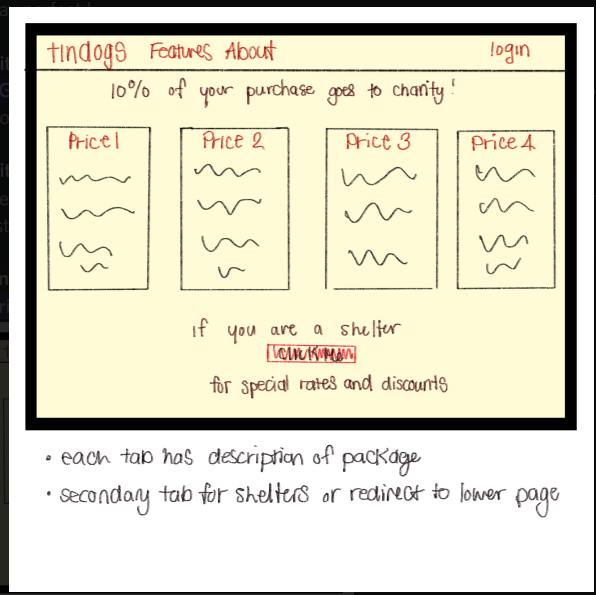 tindogs Features About login
10% of your purchase goes to charity!
Price 1 Price 2 Price 3 Price 4
if you are a shelter
click me
for special rates and discounts
• each tab has description of package
• secondary tab for shelters or redirect to lower page